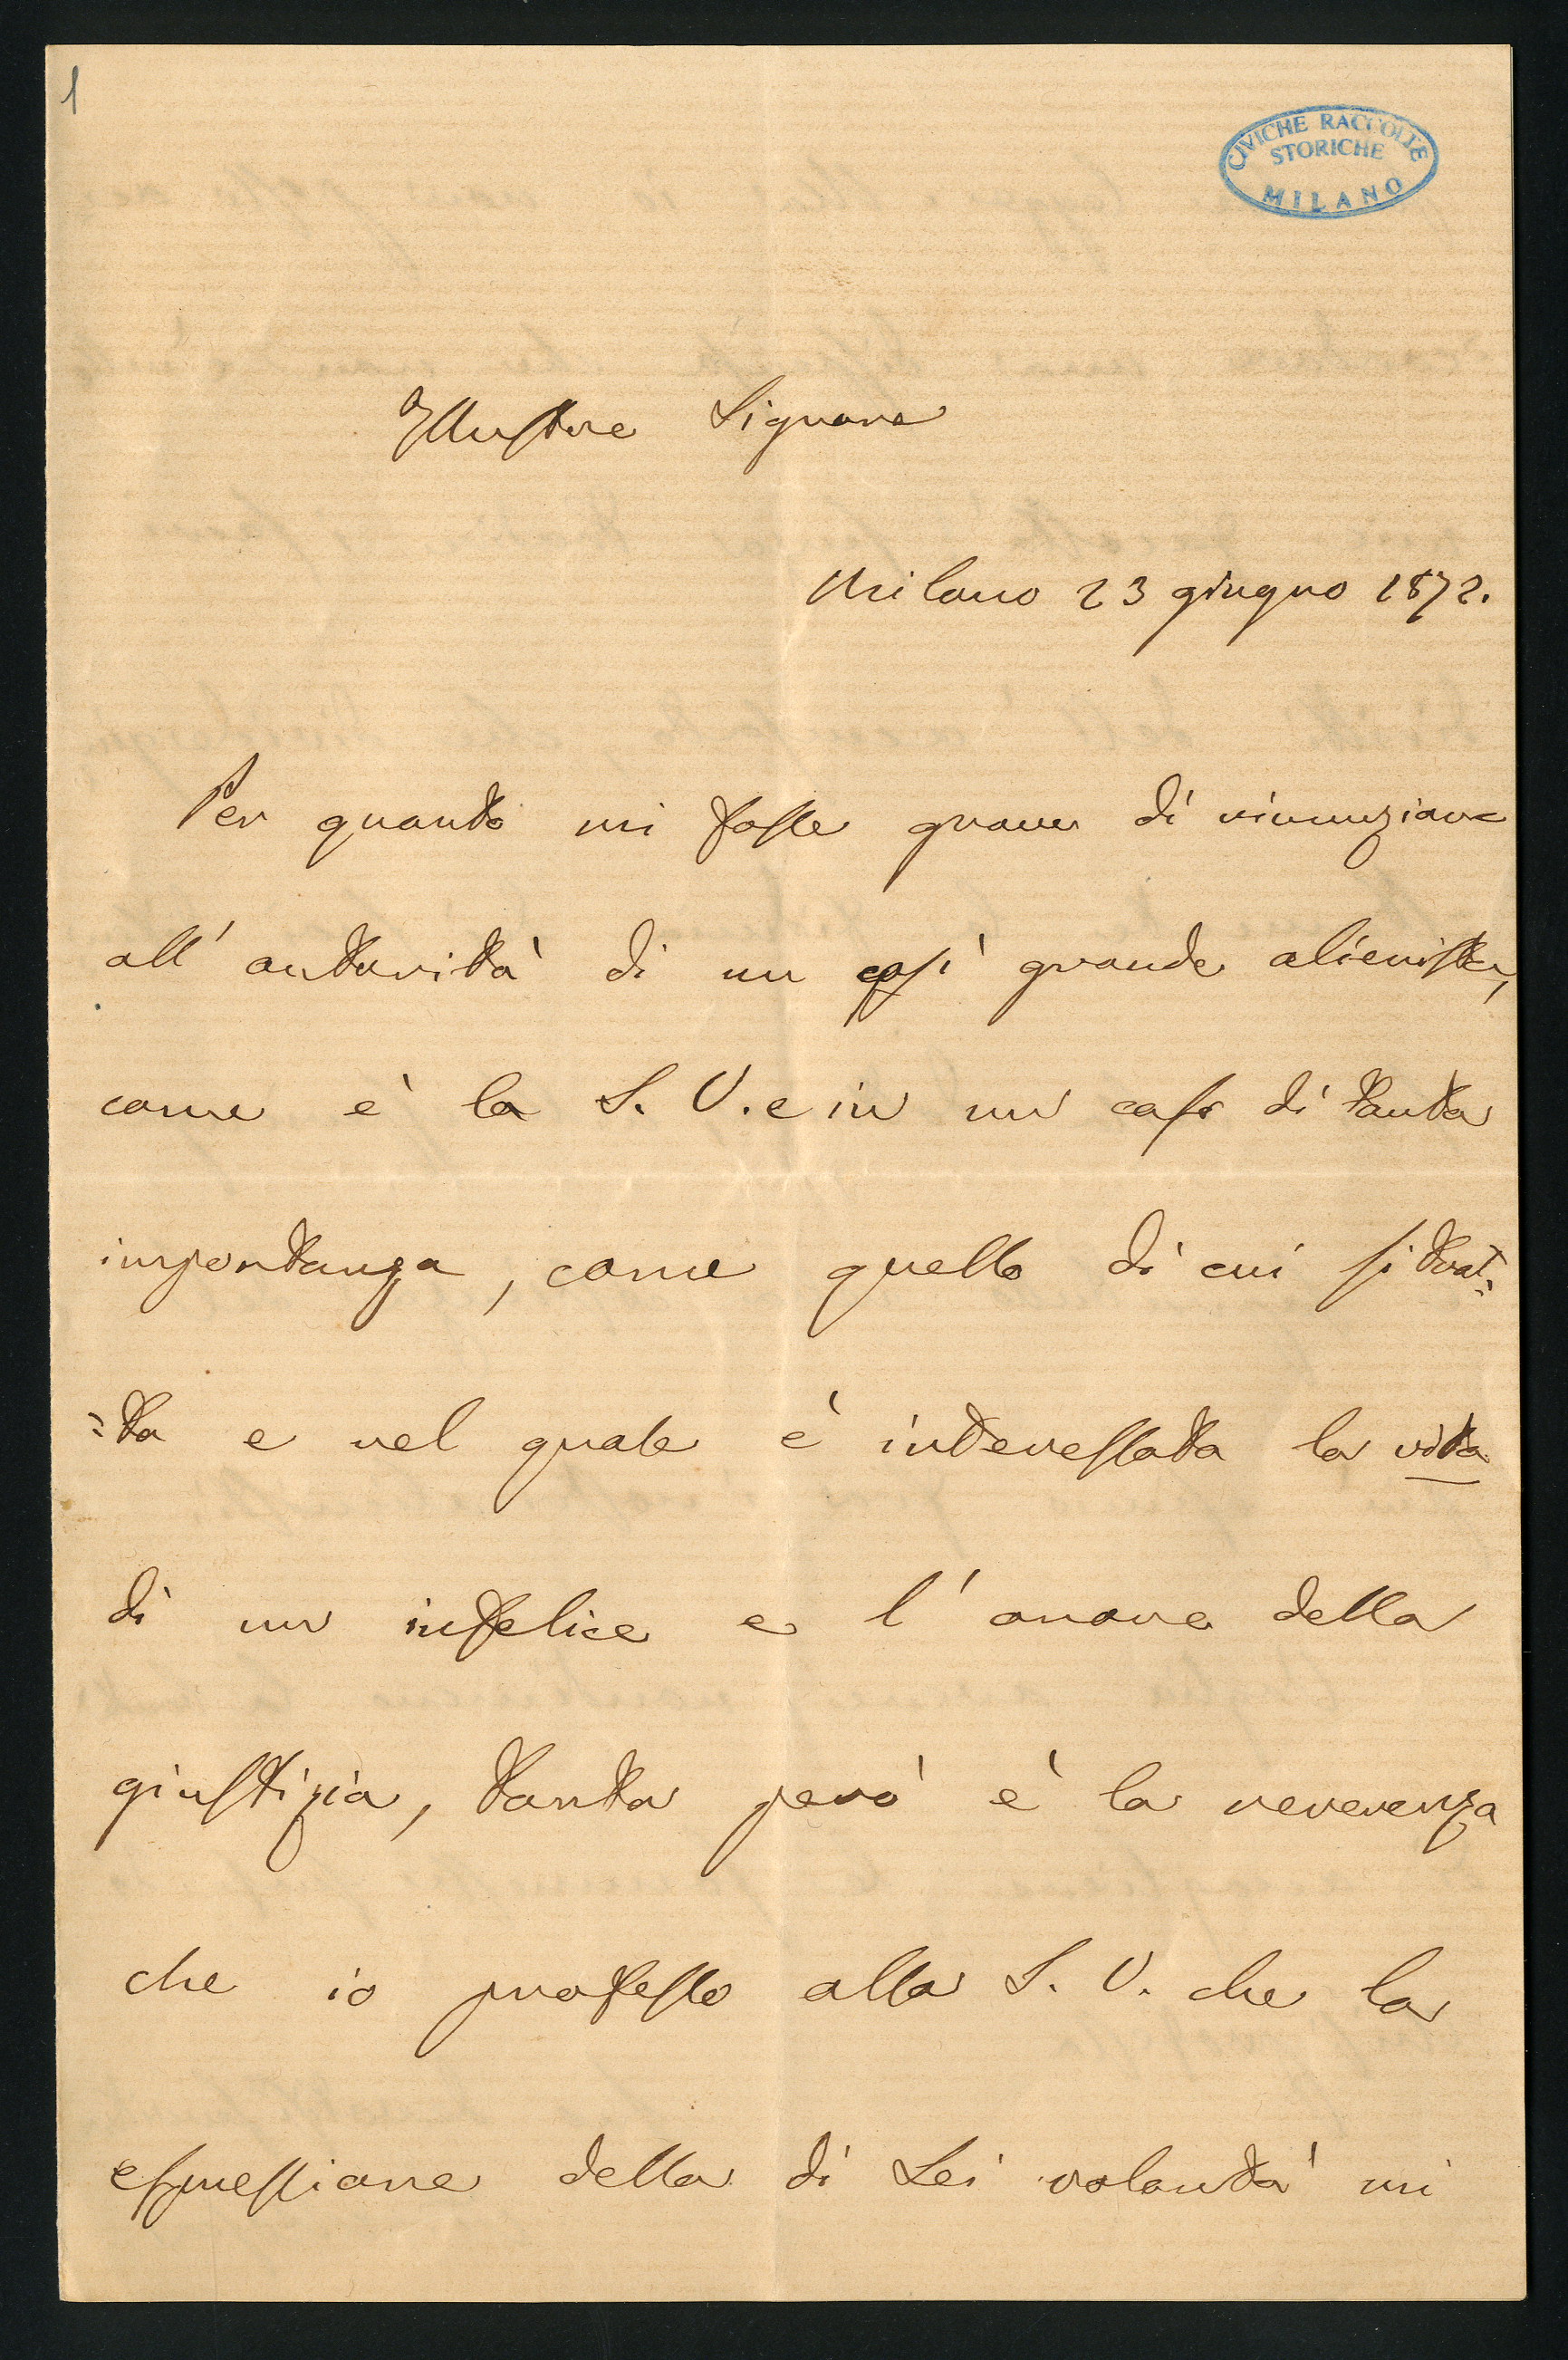 1
CIVICHE RACCOLTE
STORICHE
MILANO
Illustre Signore
Milano 23 giugno 1872.
Per quanto mi fosse grave di rinunziare
all' autorità di un così grande alienista,
come è la S. V. e in un caso di tanta
importanza, come quello di cui si trat=
=ta e nel quale è interessata la vita
di un infelice e l' onore della
giustizia, tanta però è la reverenza
che io professo alla S. V. che la
espressione della di Lei volontà mi